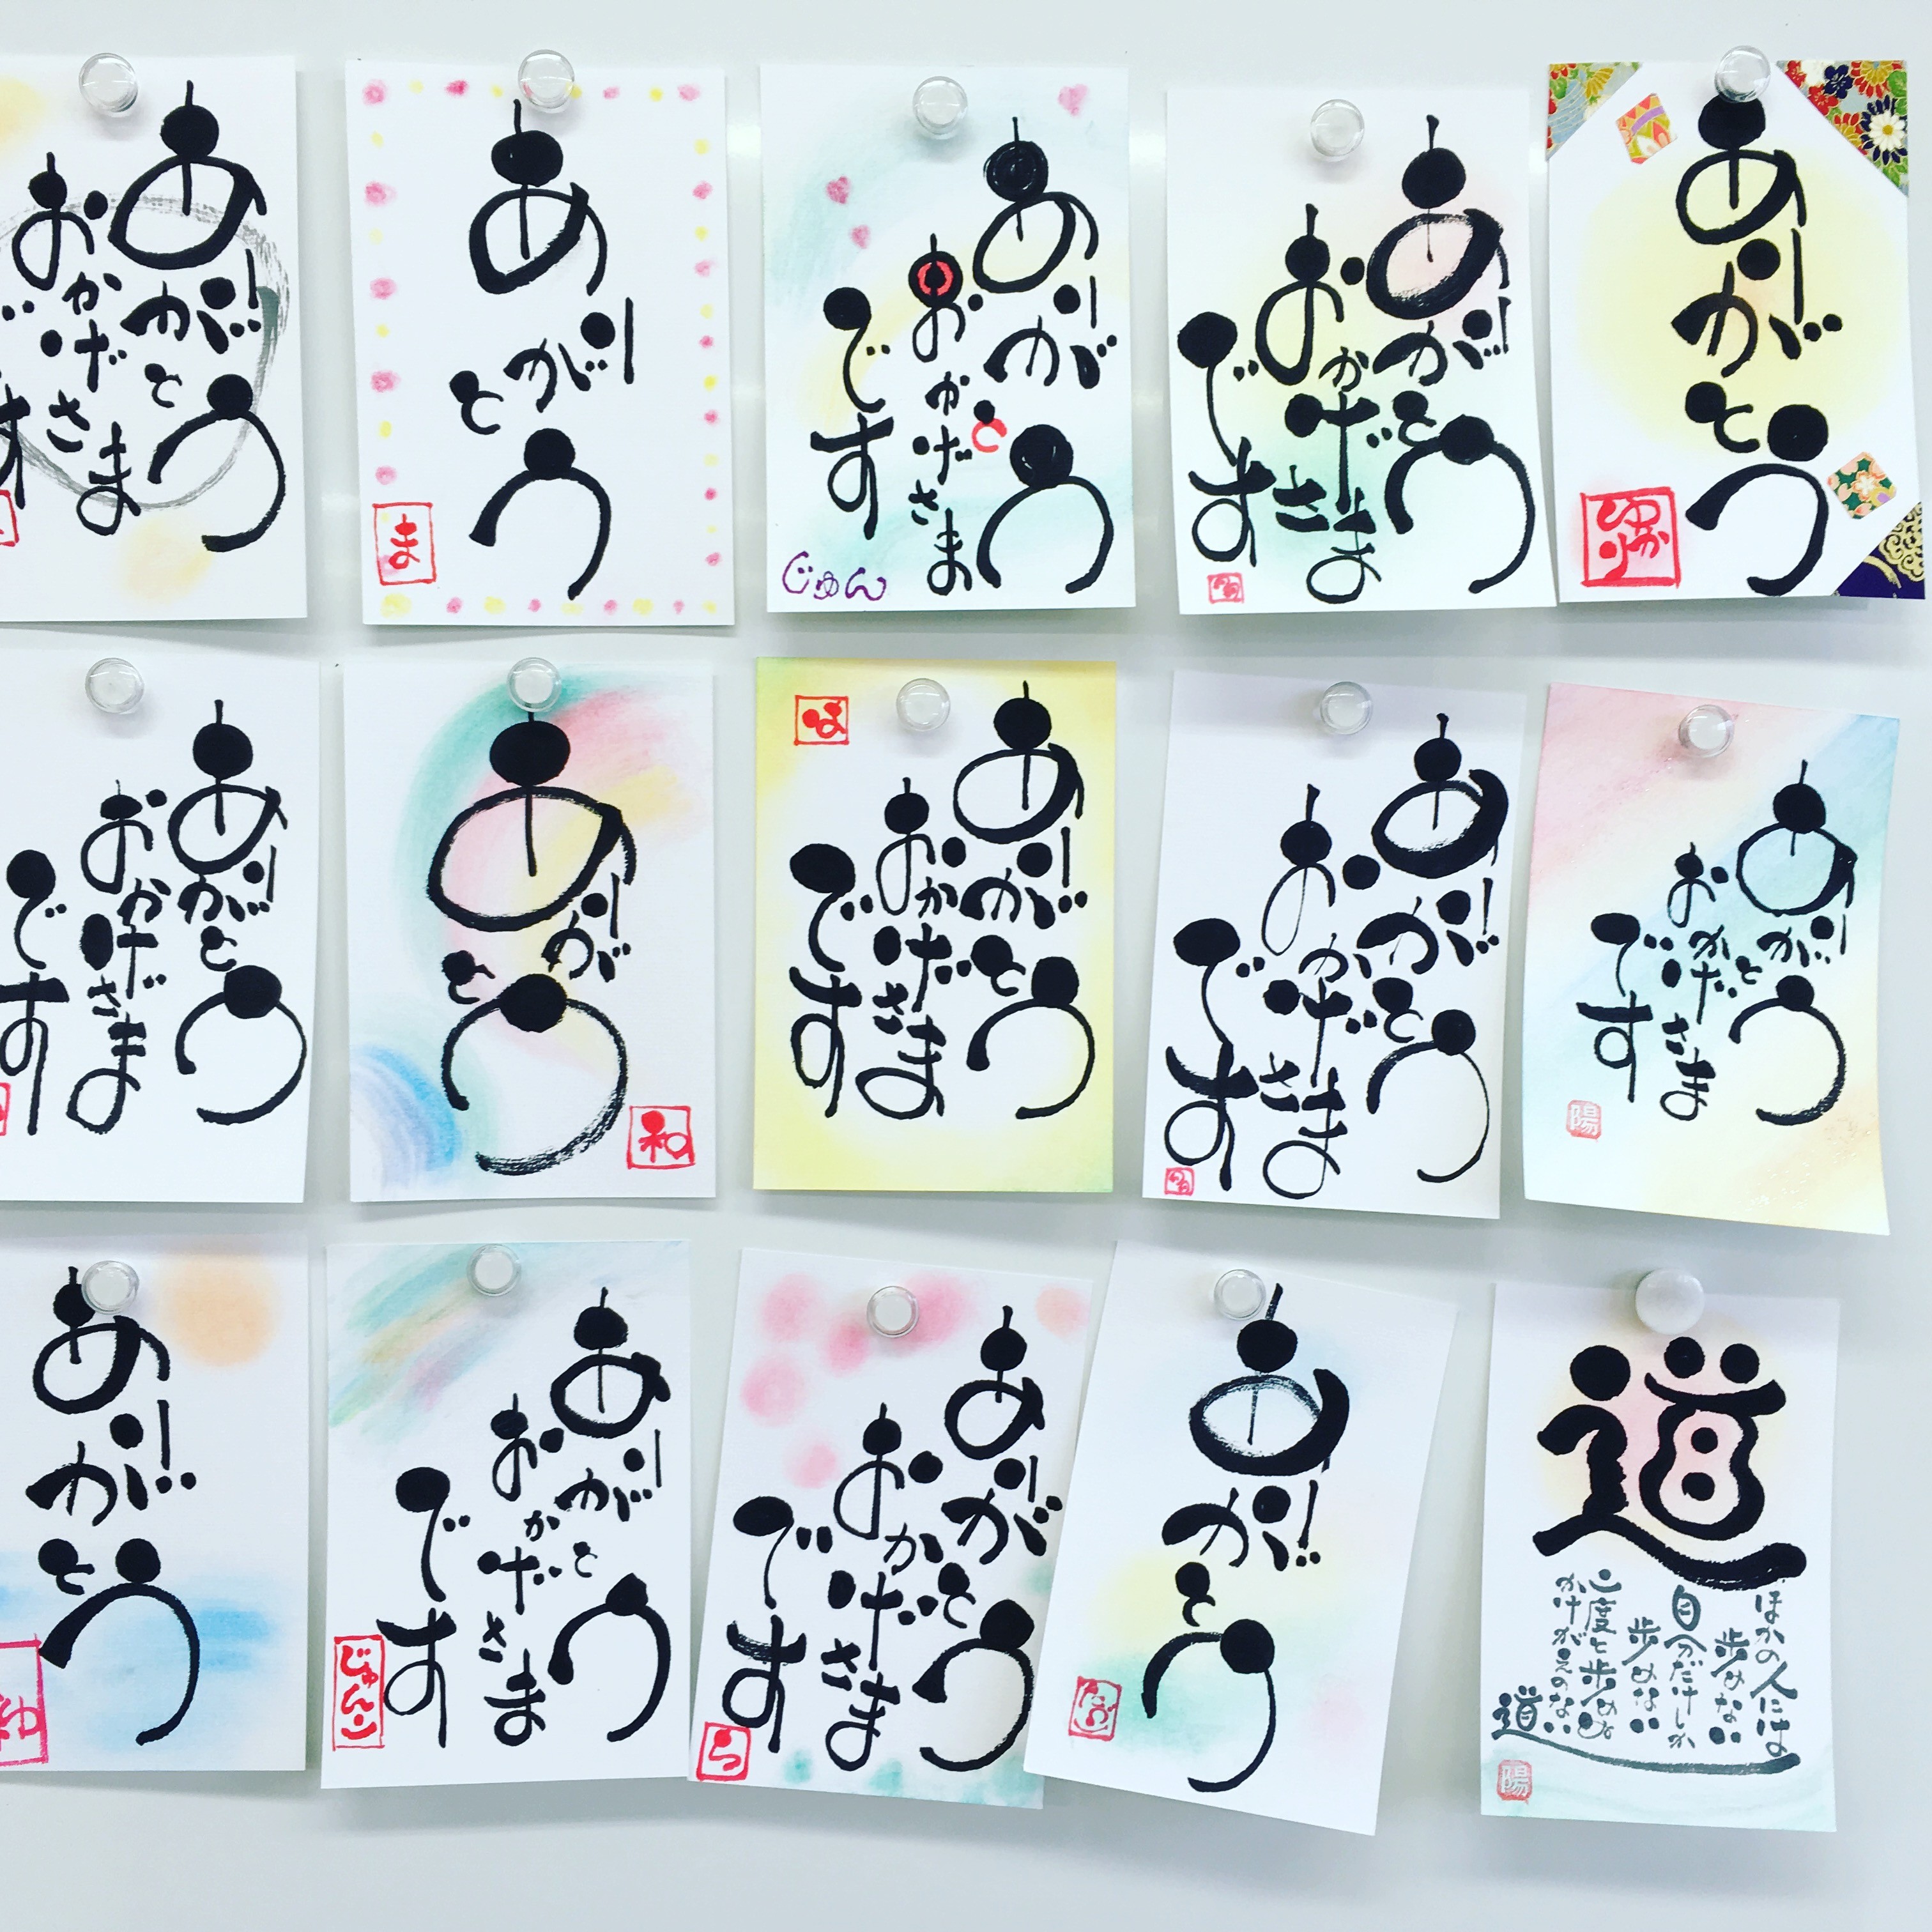 ありがとう
おかげさま
です
ま
ありがとう
ありがとう
おかげさまと
です
じゅん
ありがとう
おかげさま
です
ありがとう
ありがとう
おかげさま
です
ありがとう
和
は
ありがとう
おかげさま
です
ありがとう
おかげさま
です
ありがとう
おかげさま
です
陽
ありがとう
ありがとう
おかげさま
です
じゅんこ
ありがとう
おかげさま
です
ら
ありがとう
道
ほかの人には
歩めない
自分だけしか
歩めない
二度と歩めぬ
かけがえのない
道
陽